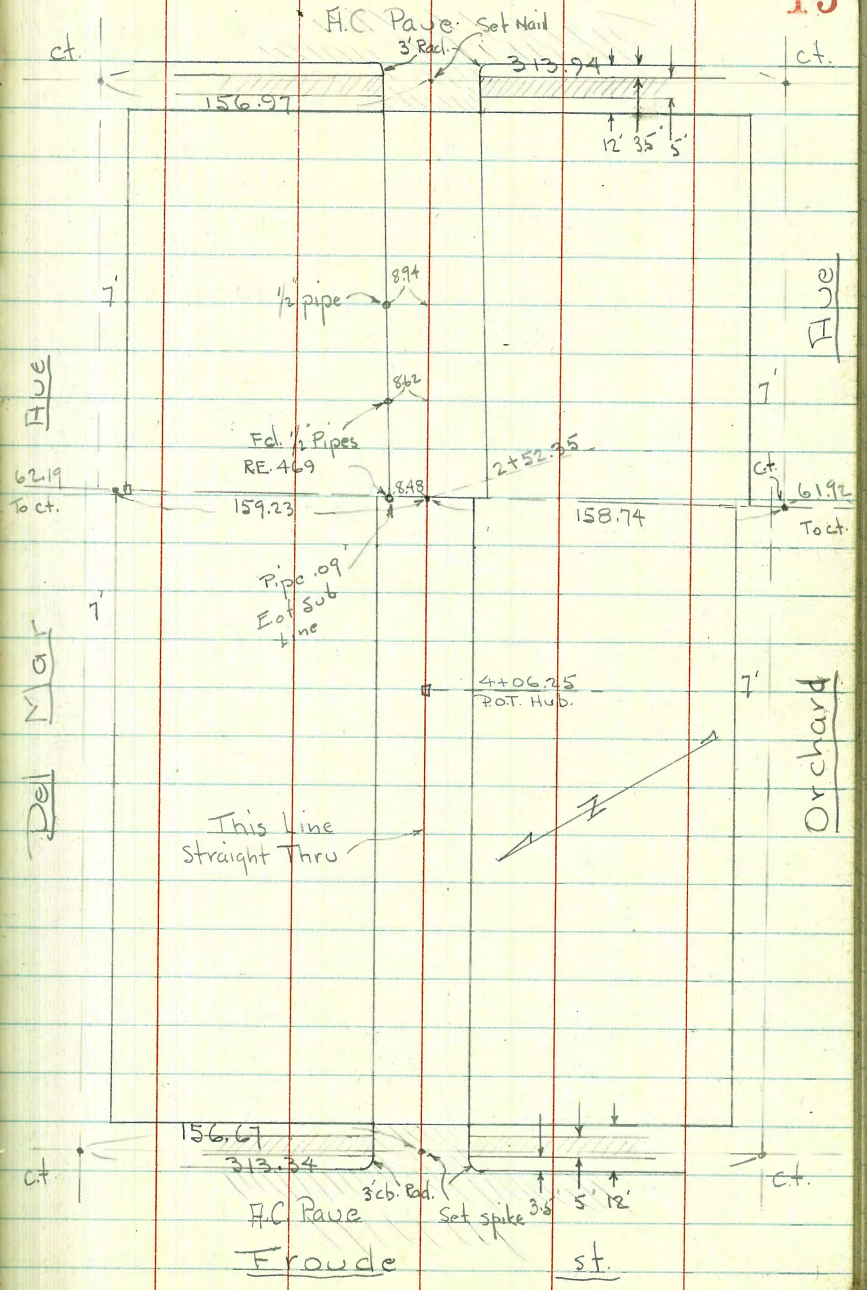 15
A.C. Pave.
Set Nail
3' Rad.
ct.
313.94
ct.
156.97
12' 3.5' 5'
8.94
1/2" pipe
7'
Ave
Ave
8.62
7'
Fd. 1/2" Pipes
RE. 469
2+52.35
ct.
62.19
To ct.
8.48
61.92
To ct.
159.23
158.74
Pipe .09'
E. of Sub
Line
7'
Del Mar
4+06.25
P.O.T. Hub.
7'
Orchard
N
This Line
Straight Thru
156.67
313.34
ct.
ct.
3' cb. Rad.
3.5' 5' 12'
A.C. Pave
Set spike
Froude st.